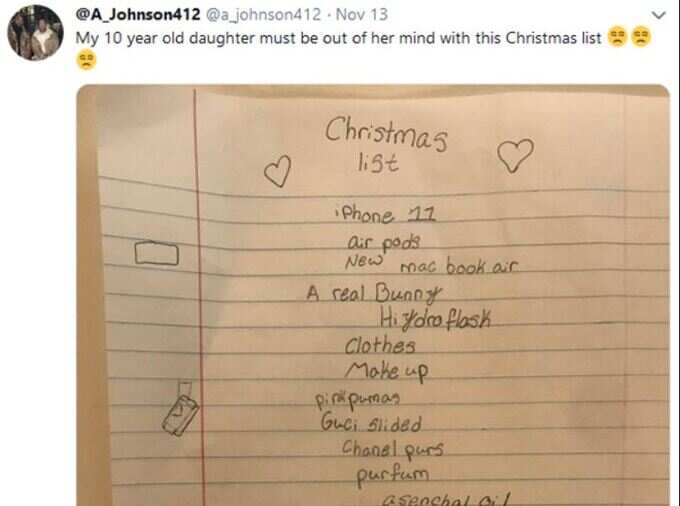 @A_Johnson412 @a_johnson412 · Nov 13
My 10 year old daughter must be out of her mind with this Christmas list
Christmas
list
iPhone 11
air pods
New mac book air
A real Bunny
Hiydro flask
Clothes
Make up
pink pumas
Guci slided
Chanel purs
purfum
asenchal oil